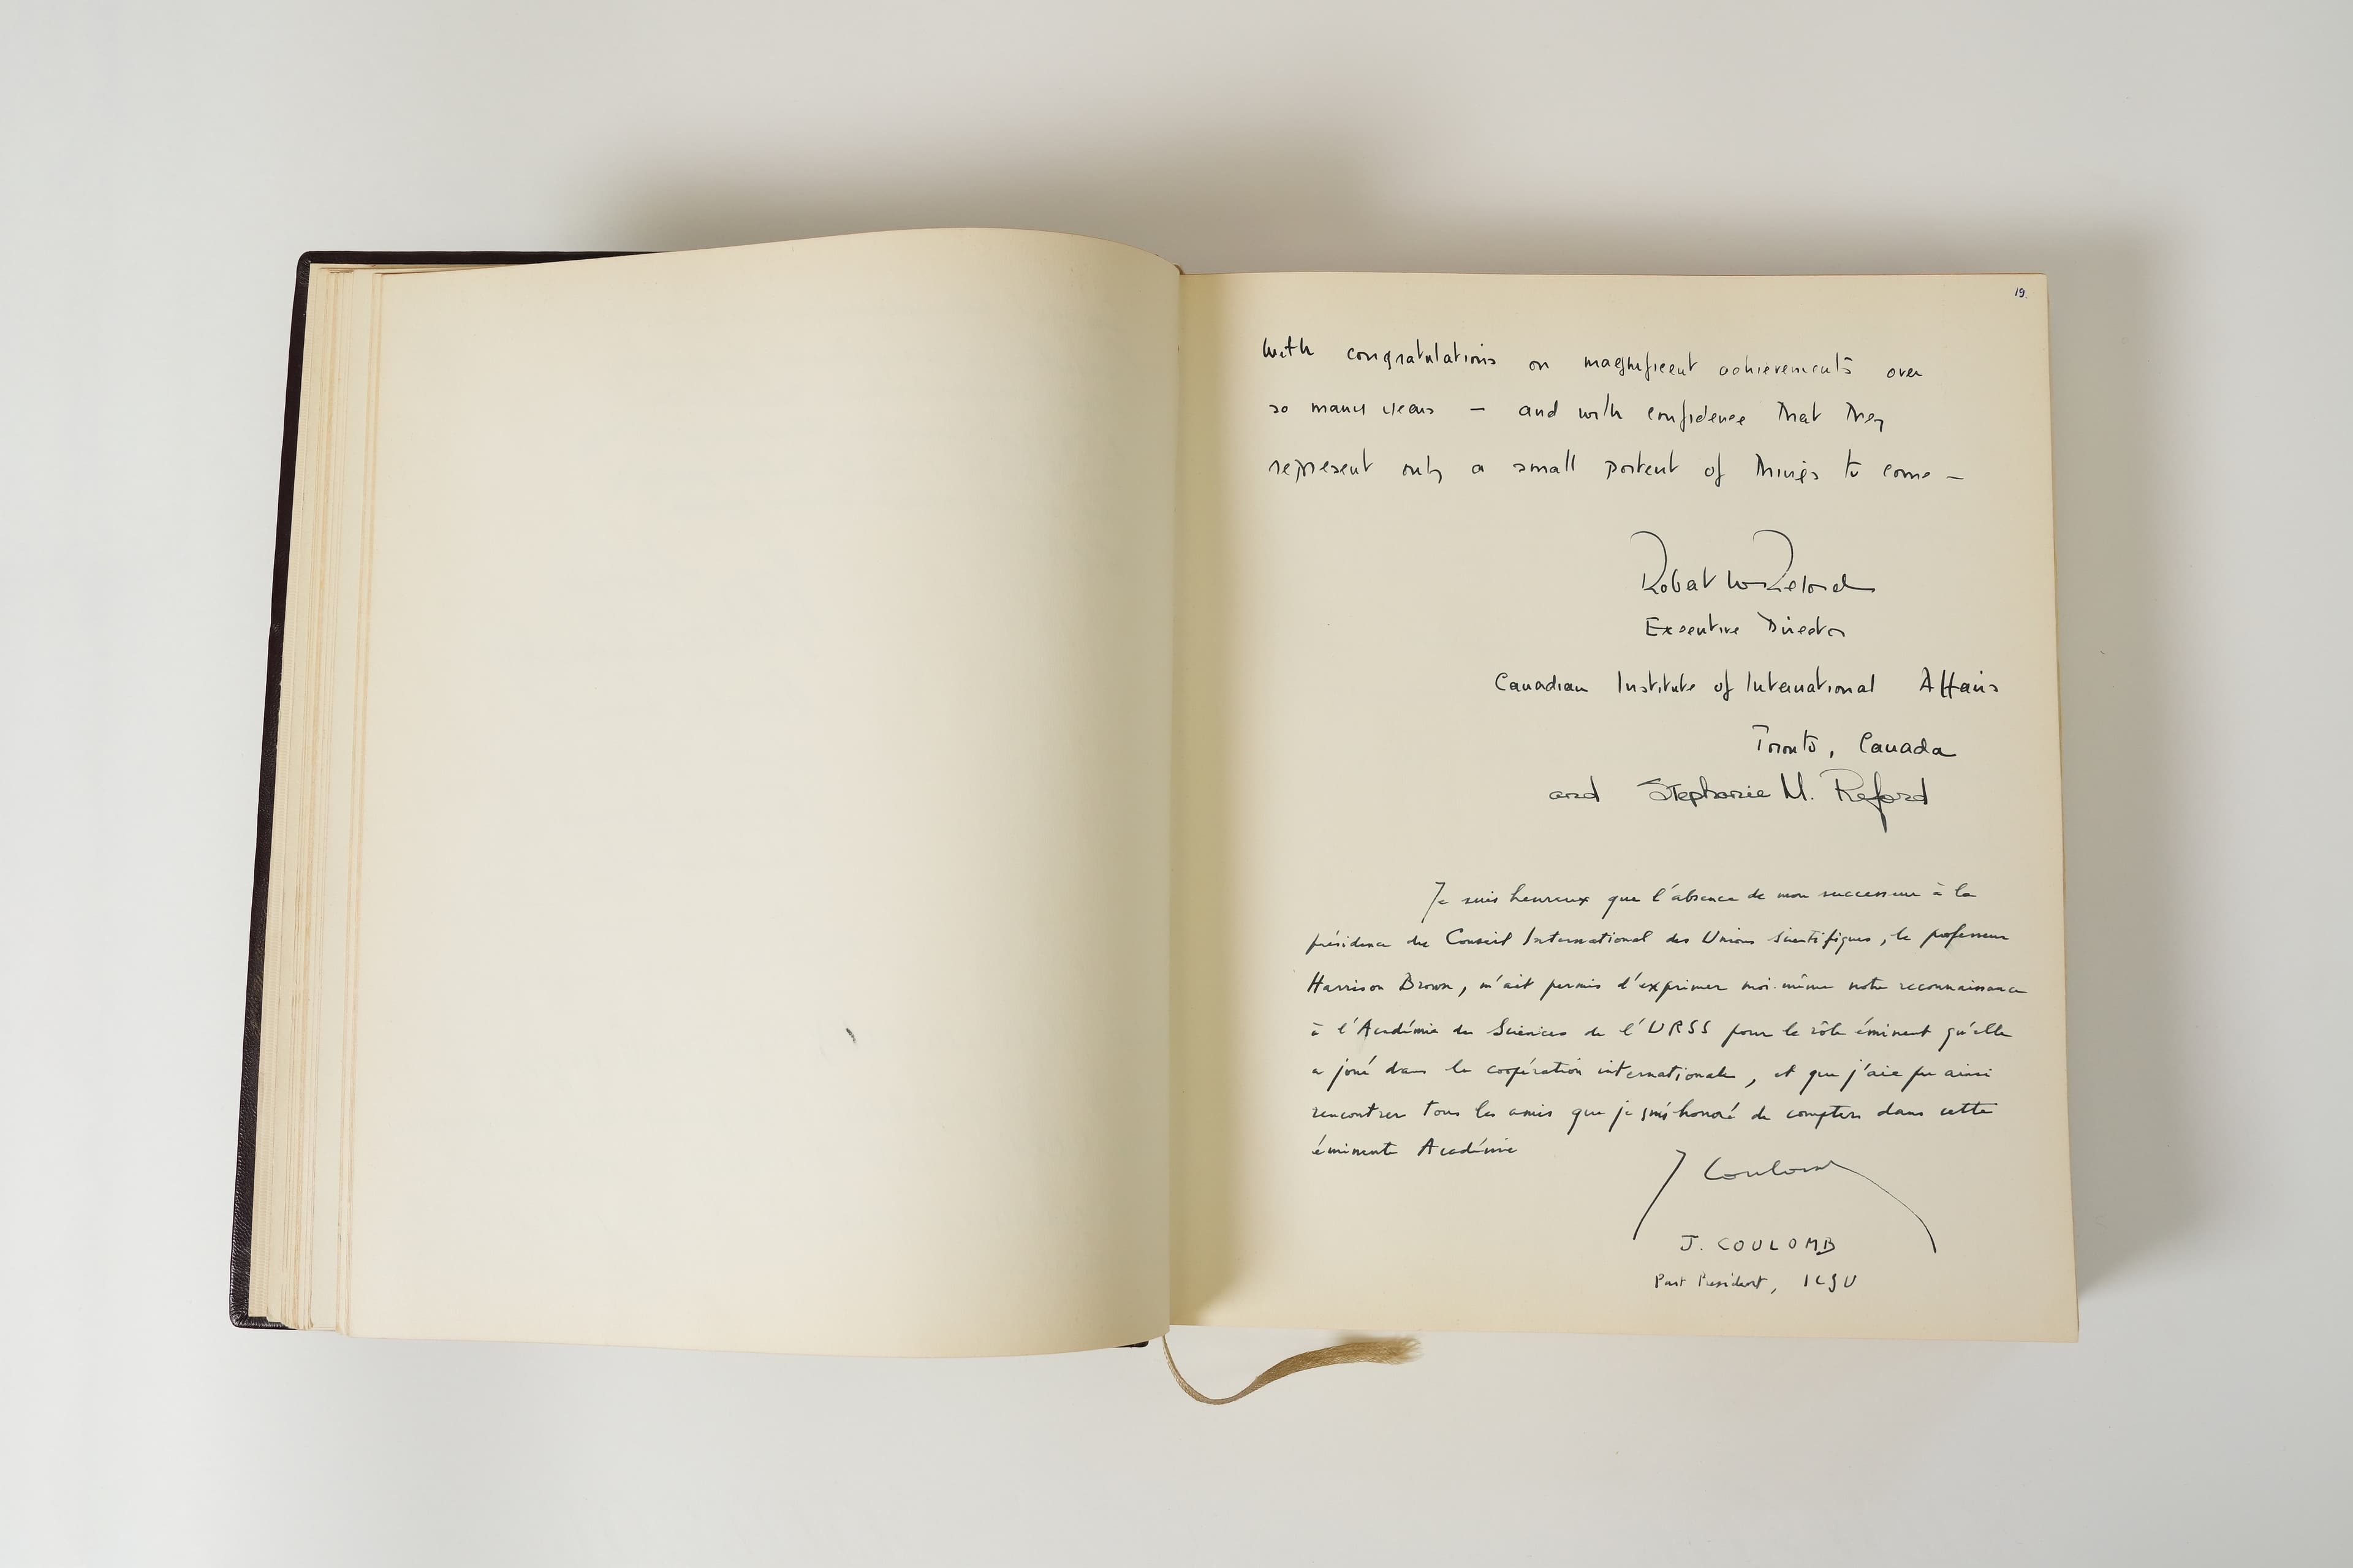 19.
With congratulations on magnificent achievements over
so many years — and with confidence that they
represent only a small portent of things to come —
Robert W Reford
Executive Director
Canadian Institute of International Affairs
Toronto, Canada
and Stephanie M. Reford
Je suis heureux que l'absence de mon successeur à la
présidence du Conseil International des Unions Scientifiques, le professeur
Harrison Brown, m'ait permis d'exprimer moi-même notre reconnaissance
à l'Académie des Sciences de l'URSS pour le rôle éminent qu'elle
a joué dans la coopération internationale, et que j'aie pu ainsi
rencontrer tous les amis que je suis honoré de compter dans cette
éminente Académie
J Coulomb
J. COULOMB
Past President, ICSU